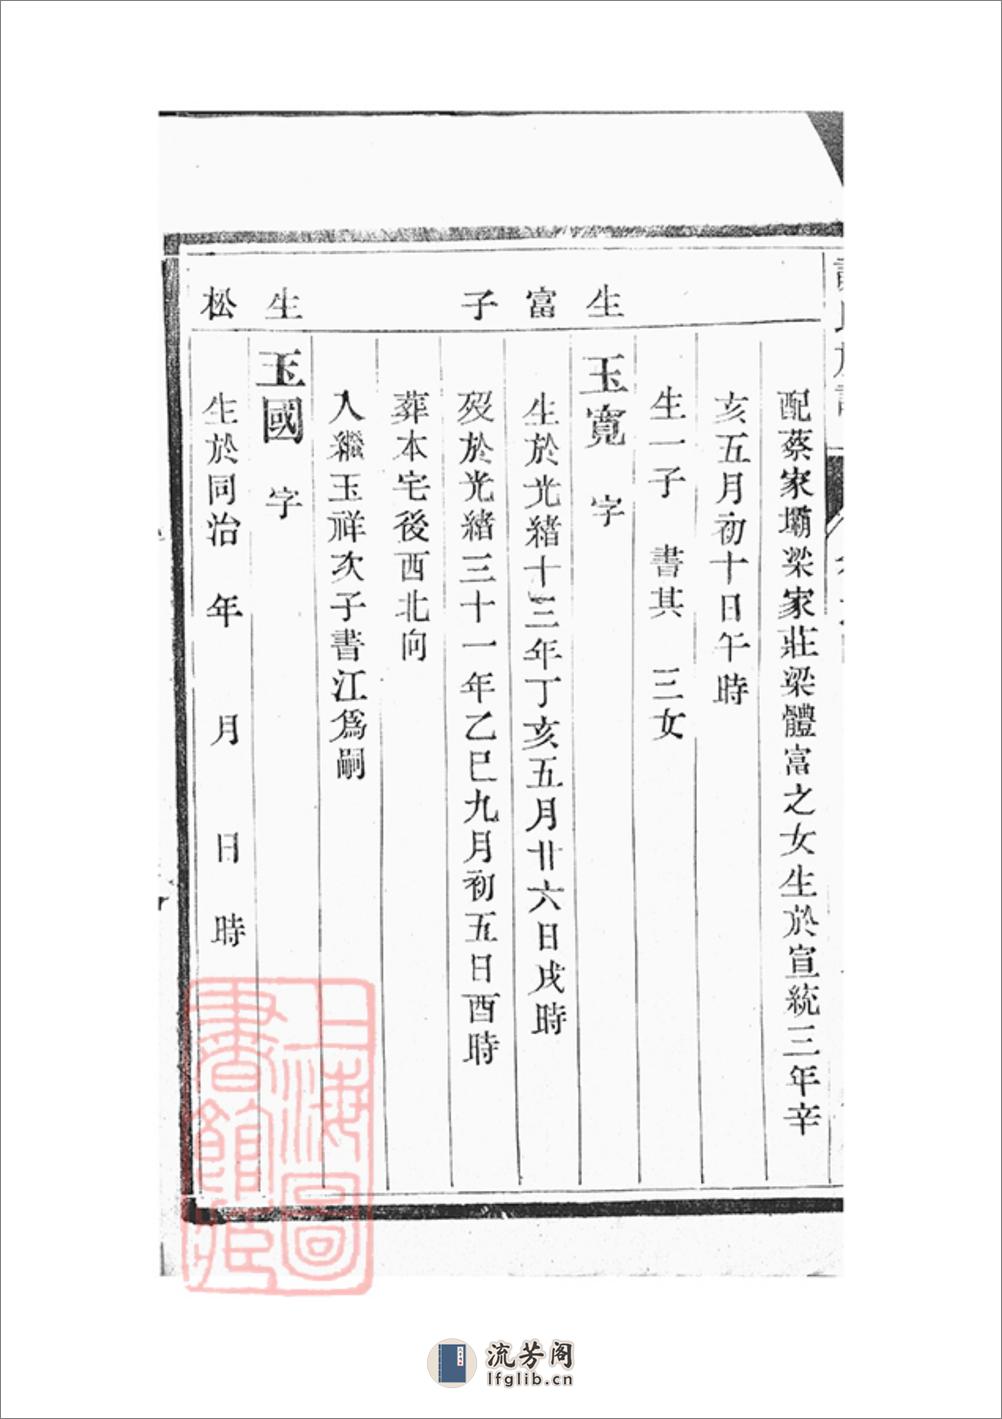 配蔡家壩梁家莊梁體富之女生於宣統三年辛
亥五月初十日午時
生一子 書其 三女
生 玉寬 字
富 生於光緒十三年丁亥五月廿六日戌時
子 歿於光緒三十一年乙巳九月初五日酉時
葬本宅後西北向
入繼玉祥次子書江為嗣
生 玉國 字
松 生於同治 年 月 日 時
上海圖
書館藏
流芳阁
lfglib.cn